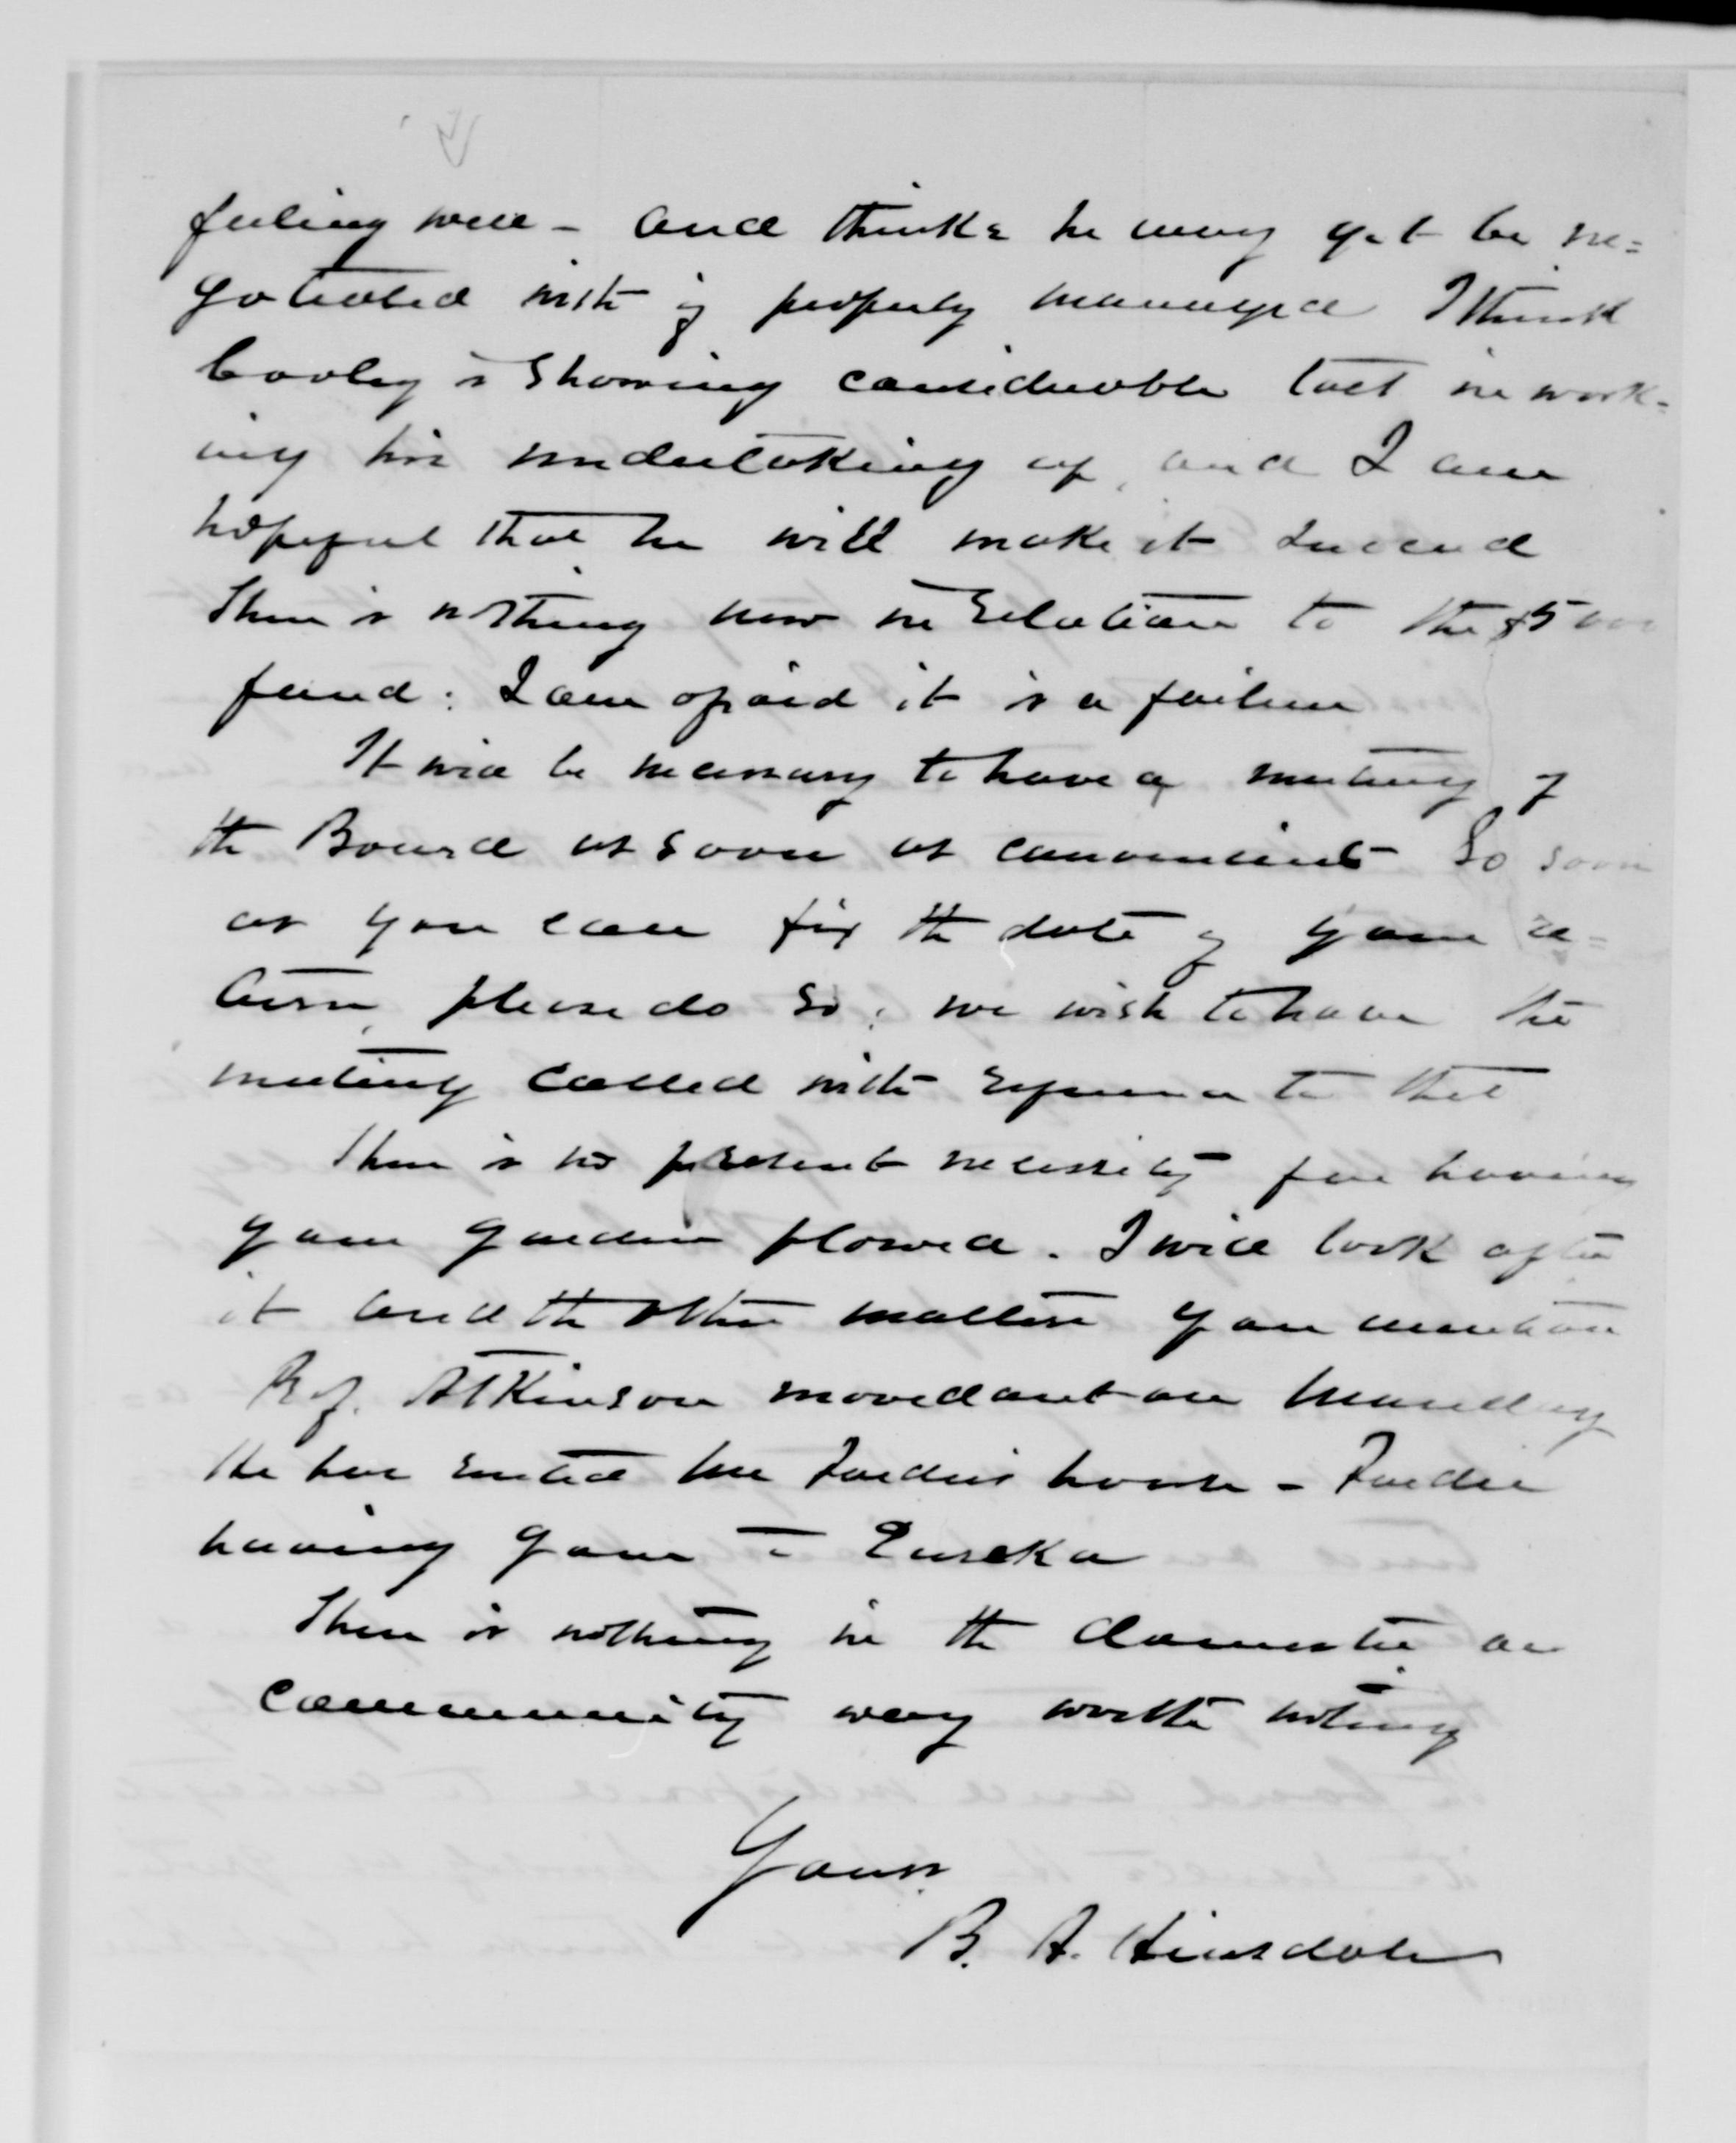 feeling well - and thinks he may yet be ne=
gotiated with if properly managed I think
Cooley is showing considerable tact in work=
ing his undertaking up, and I am
hopeful that he will make it succeed
There is nothing new in relation to the $5000
fund: I am afraid it is a failure
It will be necessary to have a meeting of
the Board as soon as convenient So soon
as you can fix the date of your re=
turn, please do so; we wish to have the
meeting called with reference to that
There is no present necessity for having
your garden plowed. I will look after
it and the other matters you mention
Prof. Atkinson moved out on Monday
He has rented the house -
having gone to Eureka
There is nothing in the domestic or
community way worth noting
Yours
B. A. Hinsdale